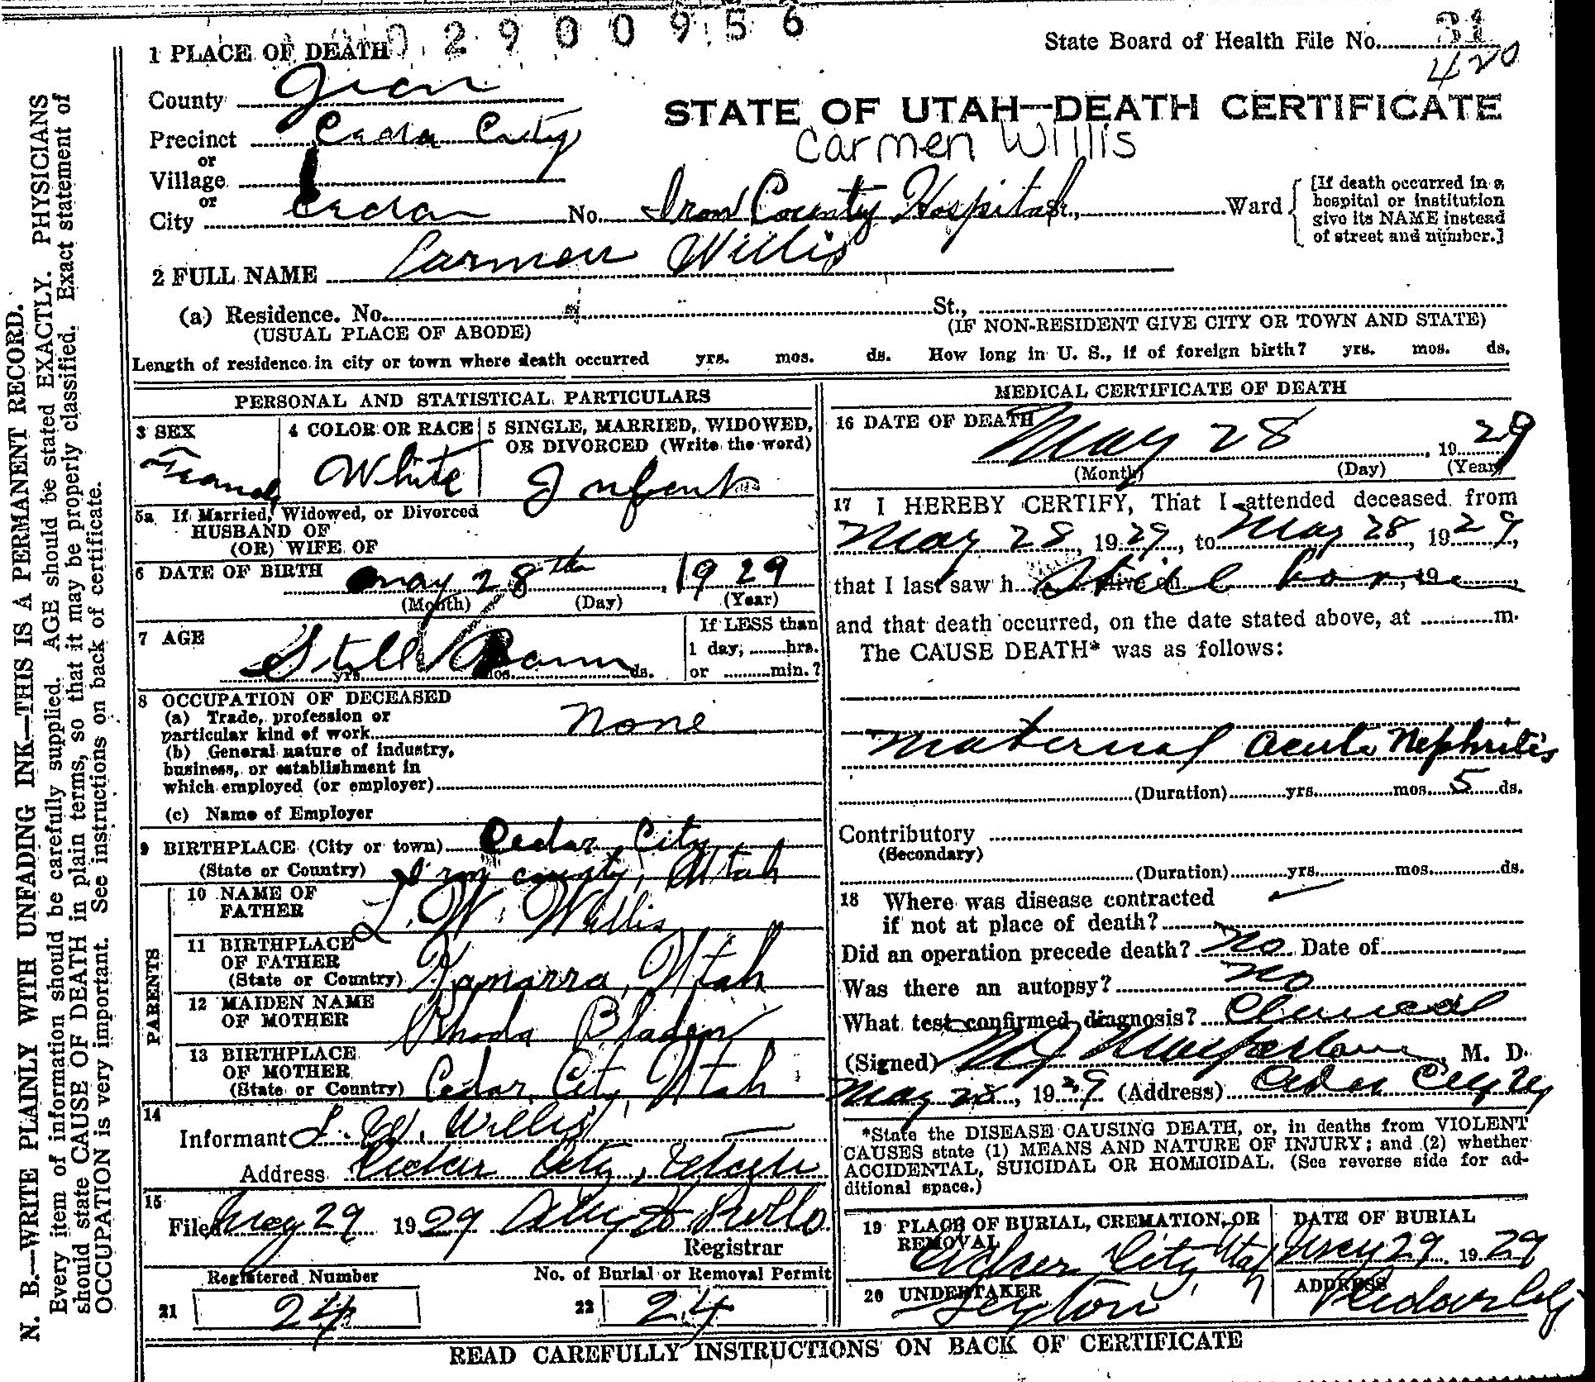 2900956
1 PLACE OF DEATH
State Board of Health File No. 31
420
County Iron
STATE OF UTAH—DEATH CERTIFICATE
Precinct Ceda City
Carmen Willis
or
Village
or
City Cedar No. Iron County Hospital, Ward
[If death occurred in a
hospital or institution
give its NAME instead
of street and number.]
2 FULL NAME Carmen Willis
(a) Residence. No. St.,
(USUAL PLACE OF ABODE) (IF NON-RESIDENT GIVE CITY OR TOWN AND STATE)
Length of residence in city or town where death occurred yrs. mos. ds. How long in U. S., if of foreign birth? yrs. mos. ds.
PERSONAL AND STATISTICAL PARTICULARS
3 SEX
4 COLOR OR RACE
White
5 SINGLE, MARRIED, WIDOWED,
OR DIVORCED (Write the word)
Infant
5a If Married, Widowed, or Divorced
HUSBAND OF
(OR) WIFE OF
6 DATE OF BIRTH May 28th, 1929
(Month) (Day) (Year)
7 AGE
Still Born
yrs. mos. ds.
If LESS than
1 day, hrs.
or min.?
8 OCCUPATION OF DECEASED
(a) Trade, profession or
particular kind of work None
(b) General nature of industry,
business, or establishment in
which employed (or employer)
(c) Name of Employer
9 BIRTHPLACE (City or town) Cedar City
(State or Country) Iron county, Utah
PARENTS
10 NAME OF
FATHER L. W. Willis
11 BIRTHPLACE
OF FATHER
(State or Country) Kanarra, Utah
12 MAIDEN NAME
OF MOTHER Rhoda Bladen
13 BIRTHPLACE
OF MOTHER
(State or Country) Cedar City Utah
14
Informant L. W. Willis
Address Cedar City, Utah
15
Filed May 29 1929
Registrar
Registered Number
21 24
No. of Burial or Removal Permit
22 24
MEDICAL CERTIFICATE OF DEATH
16 DATE OF DEATH
May 28, 1929
(Month) (Day) (Year)
17 I HEREBY CERTIFY, That I attended deceased from
May 28, 1929, to May 28, 1929,
that I last saw h alive on Still born, 19
and that death occurred, on the date stated above, at m.
The CAUSE DEATH* was as follows:
Maternal acute Nephritis
(Duration) yrs. mos. 5 ds.
Contributory
(Secondary)
(Duration) yrs. mos. ds.
18 Where was disease contracted
if not at place of death?
Did an operation precede death? No Date of
Was there an autopsy? No
What test confirmed diagnosis? Clinical
(Signed) M J Macfarlane, M. D.
May 28, 1929 (Address) Cedar City
*State the DISEASE CAUSING DEATH, or, in deaths from VIOLENT
CAUSES state (1) MEANS AND NATURE OF INJURY; and (2) whether
ACCIDENTAL, SUICIDAL OR HOMICIDAL. (See reverse side for ad-
ditional space.)
19 PLACE OF BURIAL, CREMATION, OR
REMOVAL
Cedar City Utah
DATE OF BURIAL
May 29 1929
20 UNDERTAKER
ADDRESS
Cedar City
READ CAREFULLY INSTRUCTIONS ON BACK OF CERTIFICATE
N. B.—WRITE PLAINLY WITH UNFADING INK—THIS IS A PERMANENT RECORD.
Every item of information should be carefully supplied. AGE should be stated EXACTLY. PHYSICIANS
should state CAUSE OF DEATH in plain terms, so that it may be properly classified. Exact statement of
OCCUPATION is very important. See instructions on back of certificate.